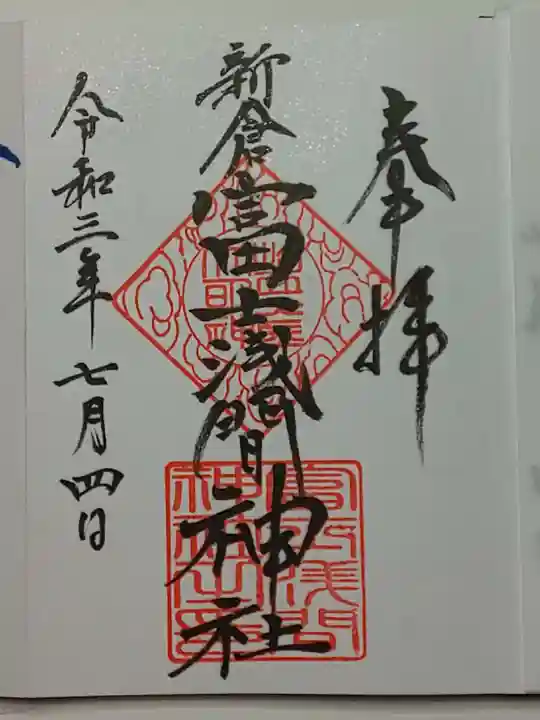 奉拝
新倉富士浅間神社
令和三年七月四日